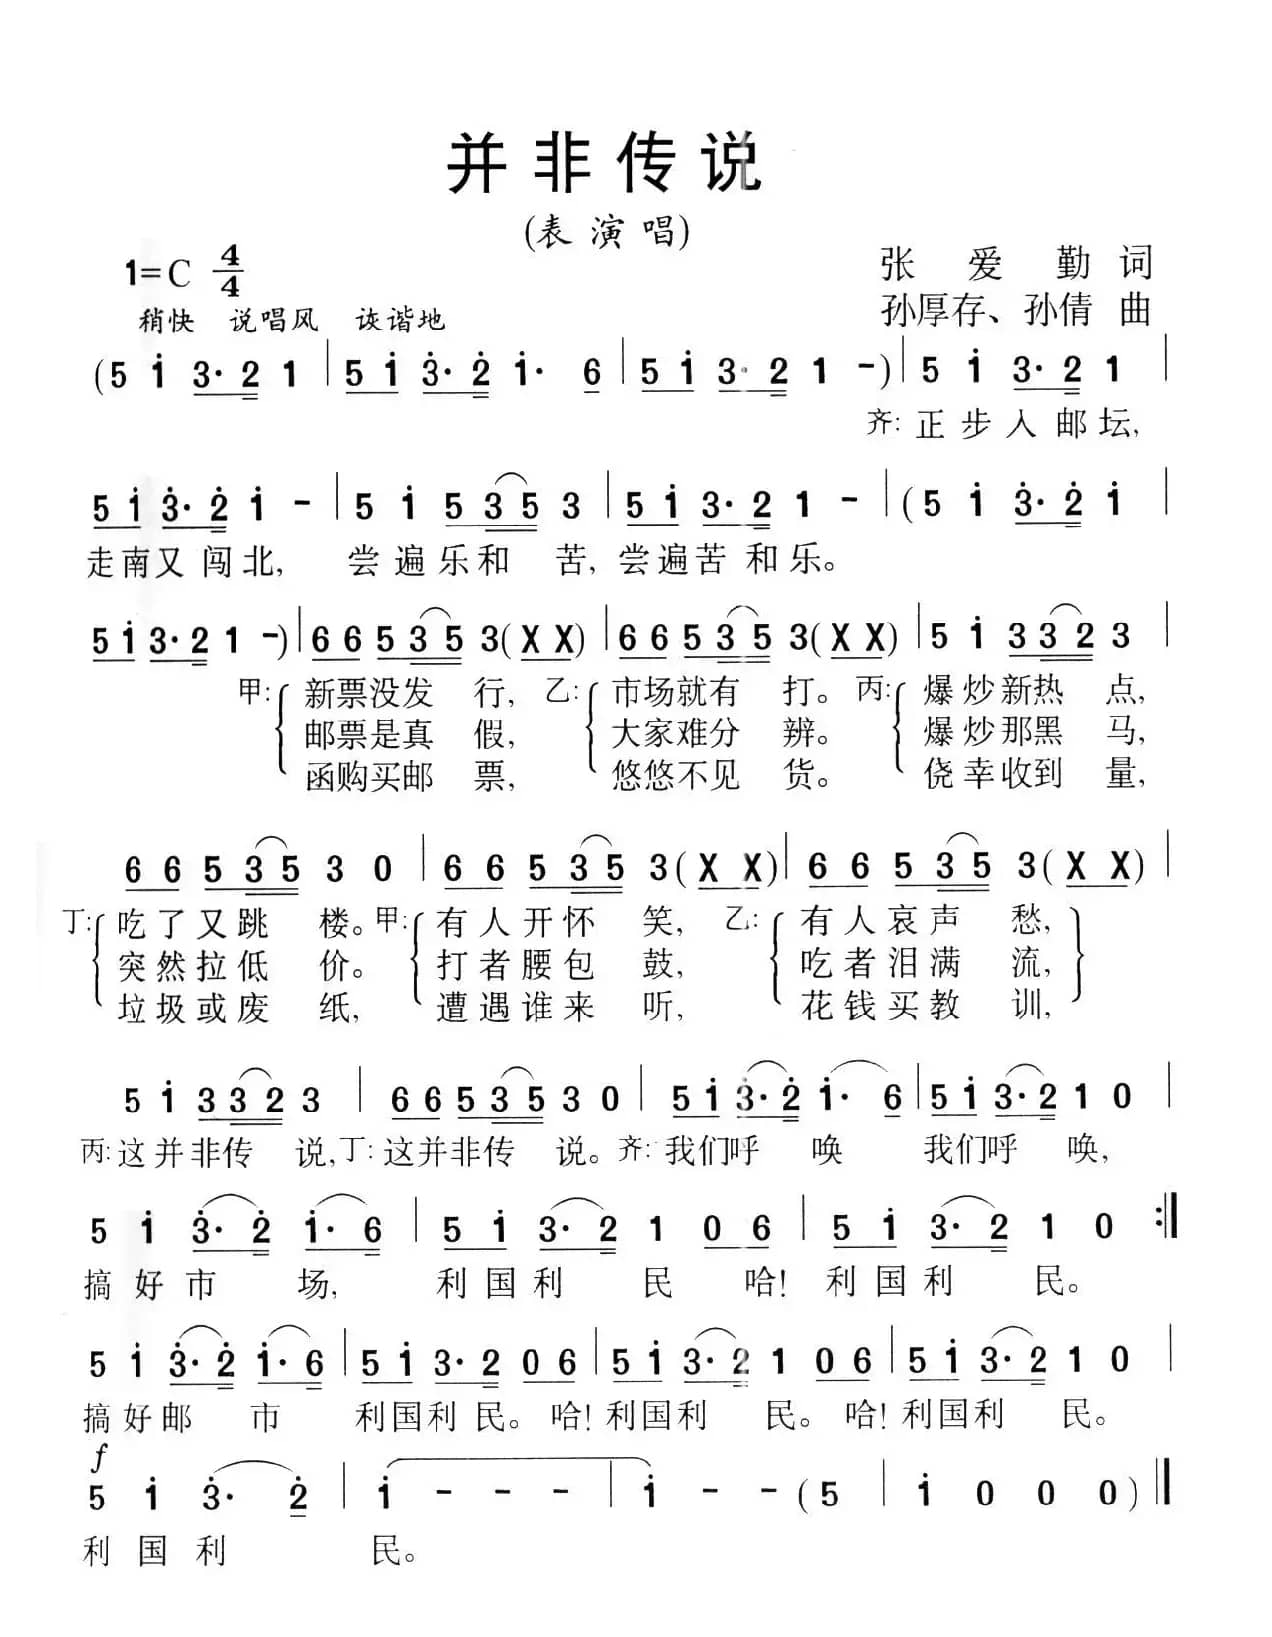 并非传说
(表演唱)
1=C 4/4
张爱勤 词
稍快 说唱风 诙谐地
孙厚存、孙倩 曲
(5 i 3· 2 1 | 5 i 3· 2 i· 6 | 5 i 3· 2 1 -) | 5 i 3· 2 1 |
齐: 正步入邮坛,
5 i 3· 2 i - | 5 i 5 3 5 3 | 5 i 3· 2 1 - | (5 i 3· 2 i |
走南又闯北, 尝遍乐和苦, 尝遍苦和乐。
5 i 3· 2 1 -) | 6 6 5 3 5 3 (X X) | 6 6 5 3 5 3 (X X) | 5 i 3 3 2 3 |
甲: 新票没发行, 乙: 市场就有打。 丙: 爆炒新热点,
邮票是真假, 大家难分辨。 爆炒那黑马,
函购买邮票, 悠悠不见货。 侥幸收到量,
6 6 5 3 5 3 0 | 6 6 5 3 5 3 (X X) | 6 6 5 3 5 3 (X X) |
丁: 吃了又跳楼。 甲: 有人开怀笑, 乙: 有人哀声愁,
突然拉低价。 打者腰包鼓, 吃者泪满流,
垃圾或废纸, 遭遇谁来听, 花钱买教训,
5 i 3 3 2 3 | 6 6 5 3 5 3 0 | 5 i 3· 2 i· 6 | 5 i 3· 2 1 0 |
丙: 这并非传说, 丁: 这并非传说。 齐: 我们呼唤 我们呼唤,
5 i 3· 2 i· 6 | 5 i 3· 2 1 0 6 | 5 i 3· 2 1 0 :|
搞好市场, 利国利民 哈! 利国利民。
5 i 3· 2 i· 6 | 5 i 3· 2 0 6 | 5 i 3· 2 1 0 6 | 5 i 3· 2 1 0 |
搞好邮市 利国利民。 哈! 利国利民。 哈! 利国利民。
f
5 i 3· 2 | i - - - | i - - (5 | i 0 0 0) ‖
利国利民。